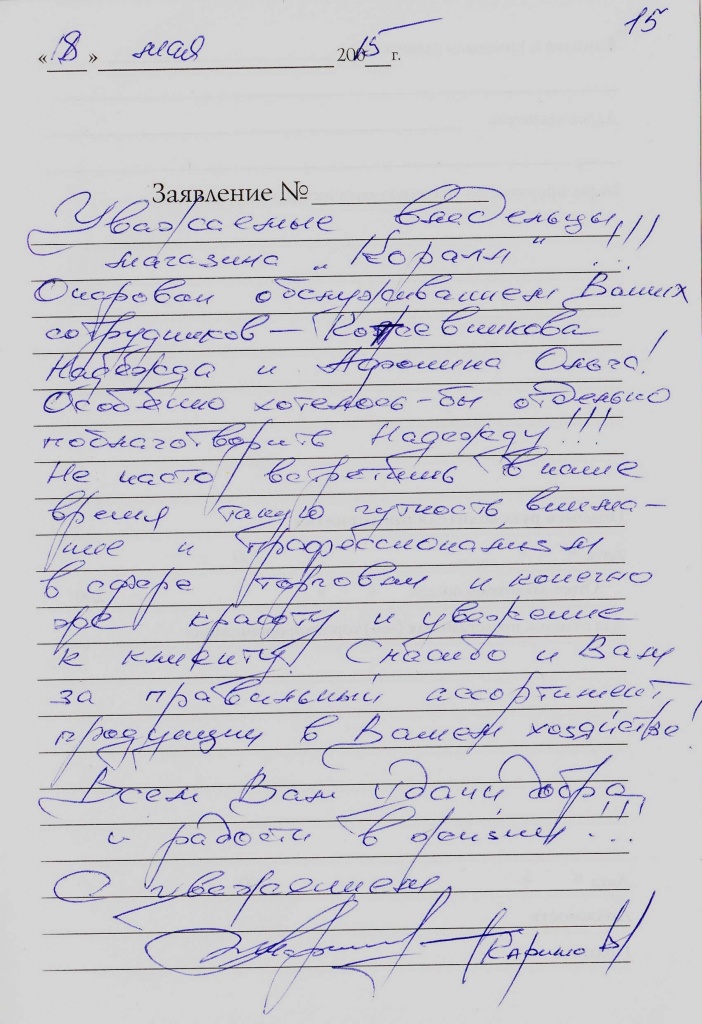 15
«18» мая 2015 г.
Заявление №
Уважаемые владельцы
магазина „Коралл" !!!
Очарован обслуживанием Ваших
сотрудников — Кожевникова
Надежда и Афонина Ольга!
Особенно хотелось-бы отдельно
поблаготворить Надежду!!!
Не часто встретишь в наше
время такую чуткость внима-
ние и профессионализм
в сфере торговли и конечно
же красоту и уважение
к клиенту! Спасибо и Вам
за правильный ассортимент
продукции в Вашем хозяйстве!
Всем Вам удачи добра
и радости в жизни!!!
С уважением